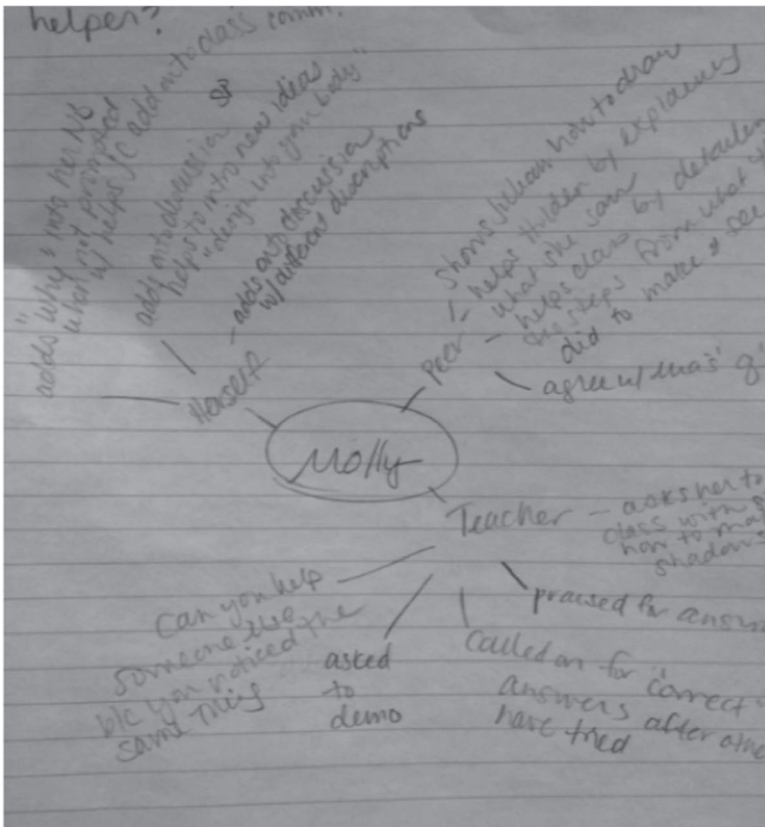 helper?
"adds why" into her NB
when not prompted
w/ helps JC add onto class comm.
adds onto discussion
helps to intro new ideas
"design into your body"
- adds onto discussion
w/ different descriptions
Herself
Molly
Peer
shows how to draw
- helps Holden by explaining
what she saw
- helps class by detailed
steps from what
did to make & see
agree w/
Teacher - asks her to
class with
how to
shadow
praised for
called on for "correct"
answers after
have tried
asked
to
demo
Can you help
someone else
b/c you noticed the
same thing